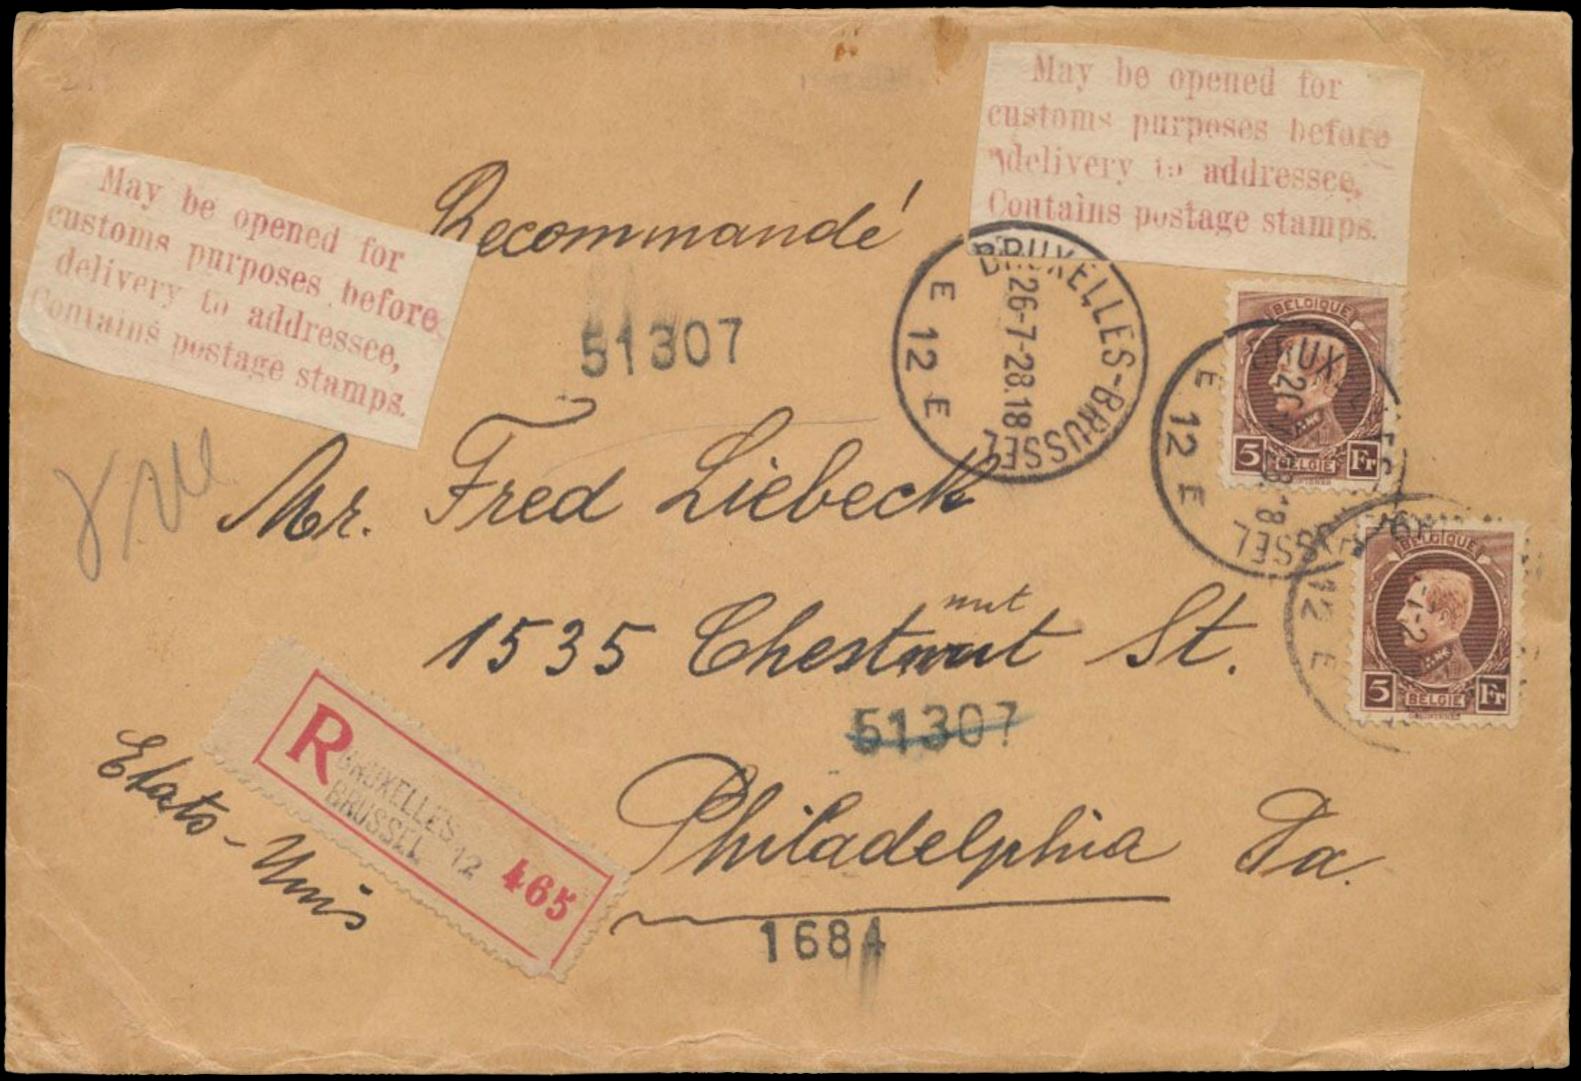 May be opened for
customs purposes before
delivery to addressee,
Contains postage stamps.
May be opened for
customs purposes before
delivery to addressee,
Contains postage stamps.
Recommandé
51307
BRUXELLES-BRUSSEL
26-7-28.18
E 12 E
BELGIQUE
5 Fr
BELGIË
E 12 E
BELGIQUE
5 Fr
BELGIË
12 E
Mr. Fred Liebeck
nut
1535 Chestnut St.
51307
Philadelphia Pa.
Etats-Unis
R
BRUXELLES 12
BRUSSEL
465
1684